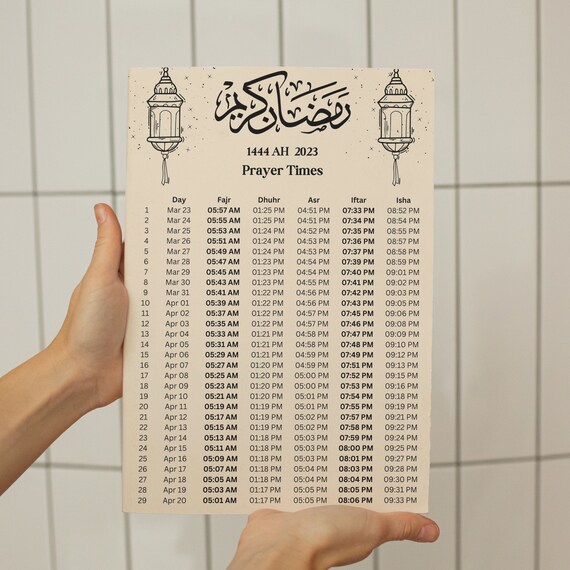 رمضان كريم
1444 AH 2023
Prayer Times
Day Fajr Dhuhr Asr Iftar Isha
1 Mar 23 05:57 AM 01:25 PM 04:51 PM 07:33 PM 08:52 PM
2 Mar 24 05:55 AM 01:25 PM 04:51 PM 07:34 PM 08:54 PM
3 Mar 25 05:53 AM 01:24 PM 04:52 PM 07:35 PM 08:55 PM
4 Mar 26 05:51 AM 01:24 PM 04:53 PM 07:36 PM 08:57 PM
5 Mar 27 05:49 AM 01:24 PM 04:53 PM 07:37 PM 08:58 PM
6 Mar 28 05:47 AM 01:23 PM 04:54 PM 07:39 PM 08:59 PM
7 Mar 29 05:45 AM 01:23 PM 04:54 PM 07:40 PM 09:01 PM
8 Mar 30 05:43 AM 01:23 PM 04:55 PM 07:41 PM 09:02 PM
9 Mar 31 05:41 AM 01:22 PM 04:56 PM 07:42 PM 09:03 PM
10 Apr 01 05:39 AM 01:22 PM 04:56 PM 07:43 PM 09:05 PM
11 Apr 02 05:37 AM 01:22 PM 04:57 PM 07:45 PM 09:06 PM
12 Apr 03 05:35 AM 01:22 PM 04:57 PM 07:46 PM 09:08 PM
13 Apr 04 05:33 AM 01:21 PM 04:58 PM 07:47 PM 09:09 PM
14 Apr 05 05:31 AM 01:21 PM 04:58 PM 07:48 PM 09:10 PM
15 Apr 06 05:29 AM 01:21 PM 04:59 PM 07:49 PM 09:12 PM
16 Apr 07 05:27 AM 01:20 PM 04:59 PM 07:51 PM 09:13 PM
17 Apr 08 05:25 AM 01:20 PM 05:00 PM 07:52 PM 09:15 PM
18 Apr 09 05:23 AM 01:20 PM 05:00 PM 07:53 PM 09:16 PM
19 Apr 10 05:21 AM 01:20 PM 05:01 PM 07:54 PM 09:18 PM
20 Apr 11 05:19 AM 01:19 PM 05:02 PM 07:55 PM 09:19 PM
21 Apr 12 05:17 AM 01:19 PM 05:02 PM 07:57 PM 09:21 PM
22 Apr 13 05:15 AM 01:19 PM 05:02 PM 07:58 PM 09:22 PM
23 Apr 14 05:13 AM 01:18 PM 05:03 PM 07:59 PM 09:24 PM
24 Apr 15 05:11 AM 01:18 PM 05:03 PM 08:00 PM 09:25 PM
25 Apr 16 05:09 AM 01:18 PM 05:04 PM 08:01 PM 09:27 PM
26 Apr 17 05:07 AM 01:18 PM 05:04 PM 08:03 PM 09:28 PM
27 Apr 18 05:05 AM 01:18 PM 05:04 PM 08:04 PM 09:30 PM
28 Apr 19 05:03 AM 01:17 PM 05:05 PM 08:05 PM 09:31 PM
29 Apr 20 05:01 AM 01:17 PM 05:05 PM 08:06 PM 09:33 PM